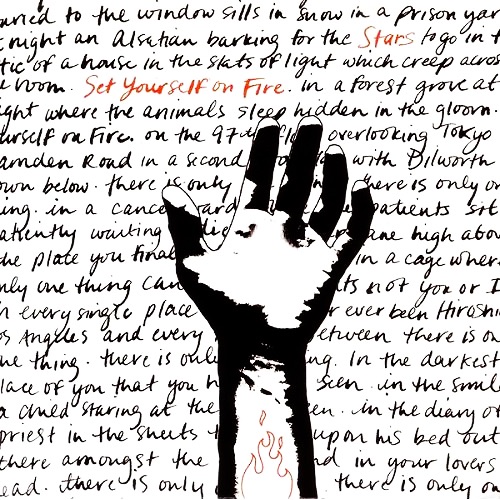 buried to the window sills in snow in a prison yar
night an Alsatian barking for the Stars to go in t
tic of a house in the slats of light which creep acros
e room. Set Yourself on Fire. in a forest grove at
ight where the animals sleep hidden in the gloom.
urself on Fire. on the 97th fl overlooking Tokyo
amden Road in a second with Dilworth
own below. there is only there is only on
ing. in a cance ard patients sit
atiently waiting die ane high abov
the place you final in a cage wher
only one thing can its not you or I
n every single place r ever been Hiroshi
os Angeles and every between there is on
ne thing. there is only ng. In the darkest
lace of you that you h seen. in the smile
a child staring at the en. in the diary of
priest in the sheets upon his bed out
there amongst the nd in your lovers
ead. there is only there is only on